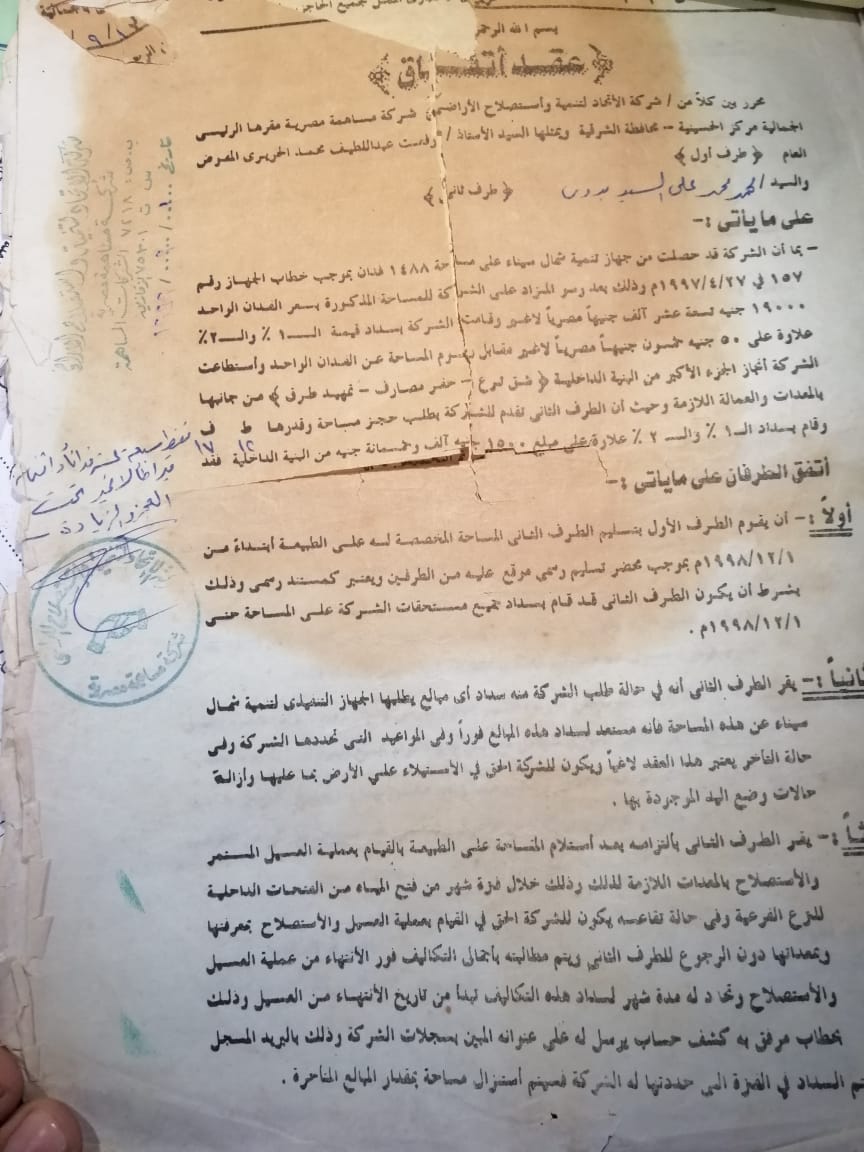 بسم الله الرحمن
عقد أتفـــاق
محرر بين كلاً من / شركة الأتحاد لتنمية وأستصلاح الأراضى شركة مساهمة مصرية مقرها الرئيسى
الجمالية مركز الحسينية – محافظة الشرقية ويمثلها السيد الأستاذ / رفعت عبداللطيف محمد الحريرى المفوض
العام ﴿ طرف أول ﴾
والسيد / محمد محمد على السيد بدوى ﴿ طرف ثانى ﴾
على ما يأتى :-
– بما أن الشركة قد حصلت من جهاز تنمية شمال سيناء على مساحة ١٤٨٨ فدان بموجب خطاب الجهاز رقم
١٥٧ في ١٩٩٧/٤/٢٧م وذلك بعد رسو المزاد على الشركة للمساحة المذكورة بسعر الفدان الواحد
١٩٠٠٠ جنيه تسعة عشر ألف جنيهاً مصرياً لاغير وقامت الشركة بسداد قيمة الـــ ١ ٪ والـــ ٢٪
علاوة على ٥٠ جنيه خمسون جنيهاً مصرياً لاغير مقابل رسوم المساحة عن الفدان الواحد وأستطاعت
الشركة أنجاز الجزء الأكبر من البنية الداخلية ﴿ شق ترع – حفر مصارف – تمهيد طرق ﴾ من جانبها
بالمعدات والعمالة اللازمة وحيث أن الطرف الثانى تقدم للشركة بطلب حجز مساحة وقدرها ط ف
١٢ ١٧
وقام بسداد الـ ١ ٪ والـــ ٢ ٪ علاوة على مبلغ ١٥٠٠ جنيه ألف وخمسمائة جنيه من البنية الداخلية فقد
أتفق الطرفان على ماياتى :-
أولاً :- أن يقوم الطرف الأول بتسليم الطرف الثانى المساحة المخصصة له على الطبيعة أبتداءً من
١٩٩٨/١٢/١م بموجب محضر تسليم رسمى موقع عليه من الطرفين ويعتبر كمستند رسمى وذلك
بشرط أن يكون الطرف الثانى قد قام بسداد جميع مستحقات الشركة على المساحة حتى
١٩٩٨/١٢/١م .
ثانياً :- يقر الطرف الثانى أنه في حالة طلب الشركة منه سداد أى مبالغ يطلبها الجهاز التنفيذى لتنمية شمال
سيناء عن هذه المساحة فأنه مستعد لسداد هذه المبالغ فوراً وفى المواعيد التى تحددها الشركة وفى
حالة التأخر يعتبر هذا العقد لاغياً ويكون للشركة الحق في الأستيلاء على الأرض بما عليها وأزالة
حالات وضع اليد الموجودة بها .
ثاً :- يقر الطرف الثانى بألتزامه بعد أستلام المساحة على الطبيعة بالقيام بعملية الغسيل المستمر
والأستصلاح بالمعدات اللازمة لذلك وذلك خلال فترة شهر من فتح المياه من الفتحات الداخلية
للترع الفرعية وفى حالة تقاعسه يكون للشركة الحق في القيام بعملية الغسيل والأستصلاح بمعرفتها
وبمعداتها دون الرجوع للطرف الثانى ويتم مطالبته بأجمالى التكاليف فور الأنتهاء من عملية الغسيل
والأستصلاح وتحدد له مدة شهر لسداد هذه التكاليف تبدأ من تاريخ الأنتهاء من الغسيل وذلك
بخطاب مرفق به كشف حساب يرسل له على عنوانه المبين بسجلات الشركة وذلك بالبريد المسجل
تم السداد في الفترة التى حددتها له الشركة فسيتم أستنزال مساحة بمقدار المبالغ المتأخرة .
شركة مساهمة مصرية